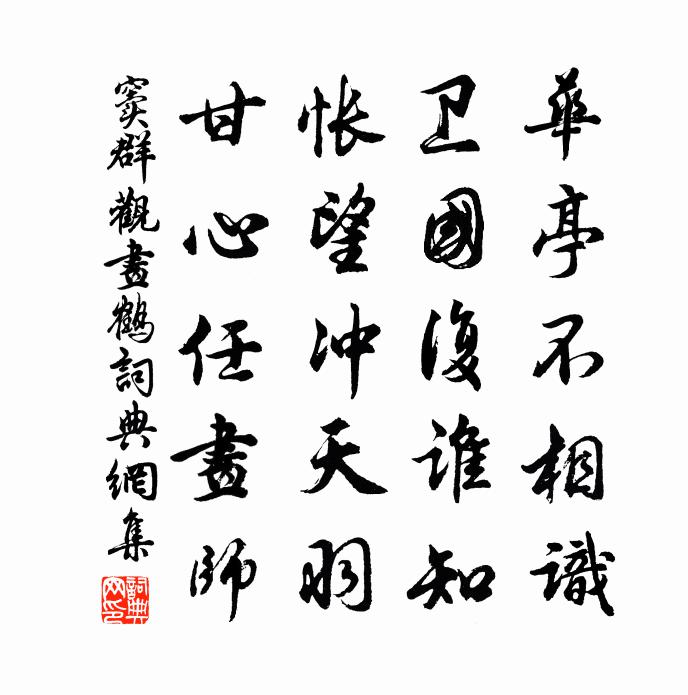 華亭不相識
卫國復誰知
悵望冲天羽
甘心任畫師
竇群觀畫鶴詞典網集
詞典網印